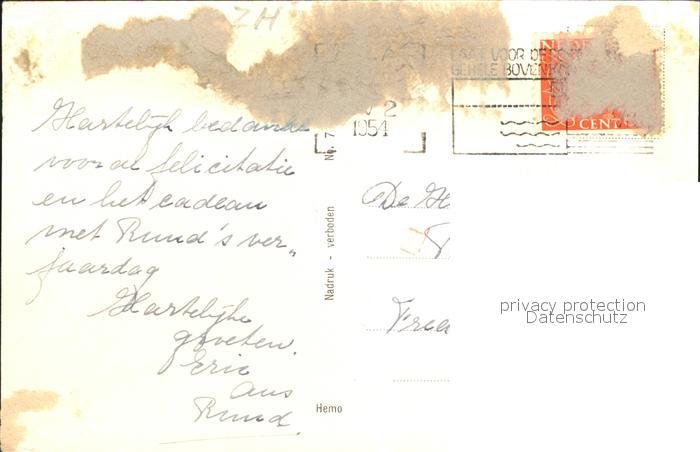 ZH
VOOR DE
GEHELE BOVEN
2
1954
CENT
Hartelijk bedankt
voor de felicitatie
en het cadeau
met Ruud's ver„
jaardag
Hartelijke
groeten.
Eric
Ruud.
No. 7
Nadruk - verboden
Hemo
De H
privacy protection
Datenschutz